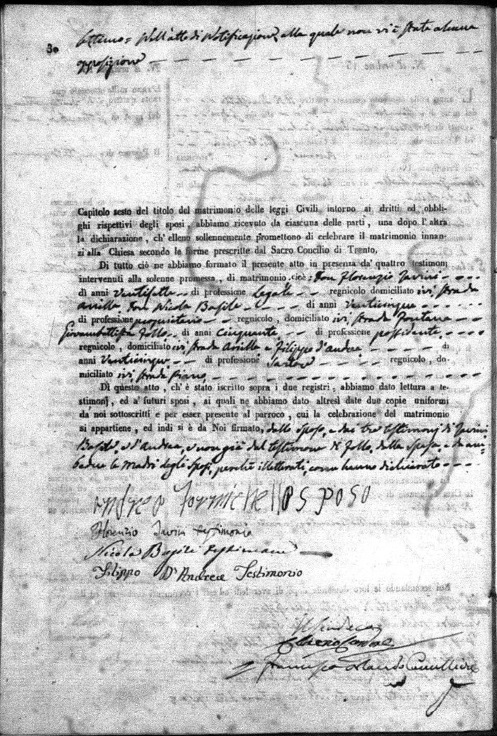 30
ottavo = dell'atto di notificazione, alla quale non vi è stata alcuna
opposizione
Capitolo sesto del titolo del matrimonio delle leggi Civili intorno ai dritti ed obbli-
ghi rispettivi degli sposi abbiamo ricevuto da ciascuna delle parti, una dopo l'altra
la dichiarazione, ch' elleno sollennemente promettono di celebrare il matrimonio innan-
zi alla Chiesa secondo le forme prescritte dal Sacro Concilio di Trento,
Di tutto ciò ne abbiamo formato il presente atto in presenza da' quattro testimonj
intervenuti alla solenne promessa, di matrimonio cioè: Don Florenzio
di anni ventisette di professione Legale regnicolo domiciliato ivi, strada
Don Nicola Basile di anni venticinque
di professione regnicolo, domiciliato ivi, strada Fontana
Giovambattista Zollo di anni cinquanta di professione possidente
regnicolo, domiciliato ivi, strada Filippo d'Andrea di
anni venticinque di professione regnicolo, do-
miciliato ivi strada
Di questo atto, ch'è stato iscritto sopra i due registri, abbiamo dato lettura a te-
stimonj, ed a' futuri sposi, ai quali ne abbiamo dato altresì date due copie uniformi
da noi sottoscritti e per esser presente al parroco, cui la celebrazione del matrimonio
si appartiene, ed indi si è da Noi firmato, dallo sposo, e dai tre testimonj di
Basile, e d'Andrea, e non già dal testimone di Zollo, dalla sposa, e da am-
bedue le Madri degli sposi, perchè illetterati, come hanno dichiarato
Andrea Formichello sposo
Florenzio testimonio
Nicola Basile testimone
Filippo D'Andrea Testimonio
Il Sindaco
Francesco Orlando Cancelliere